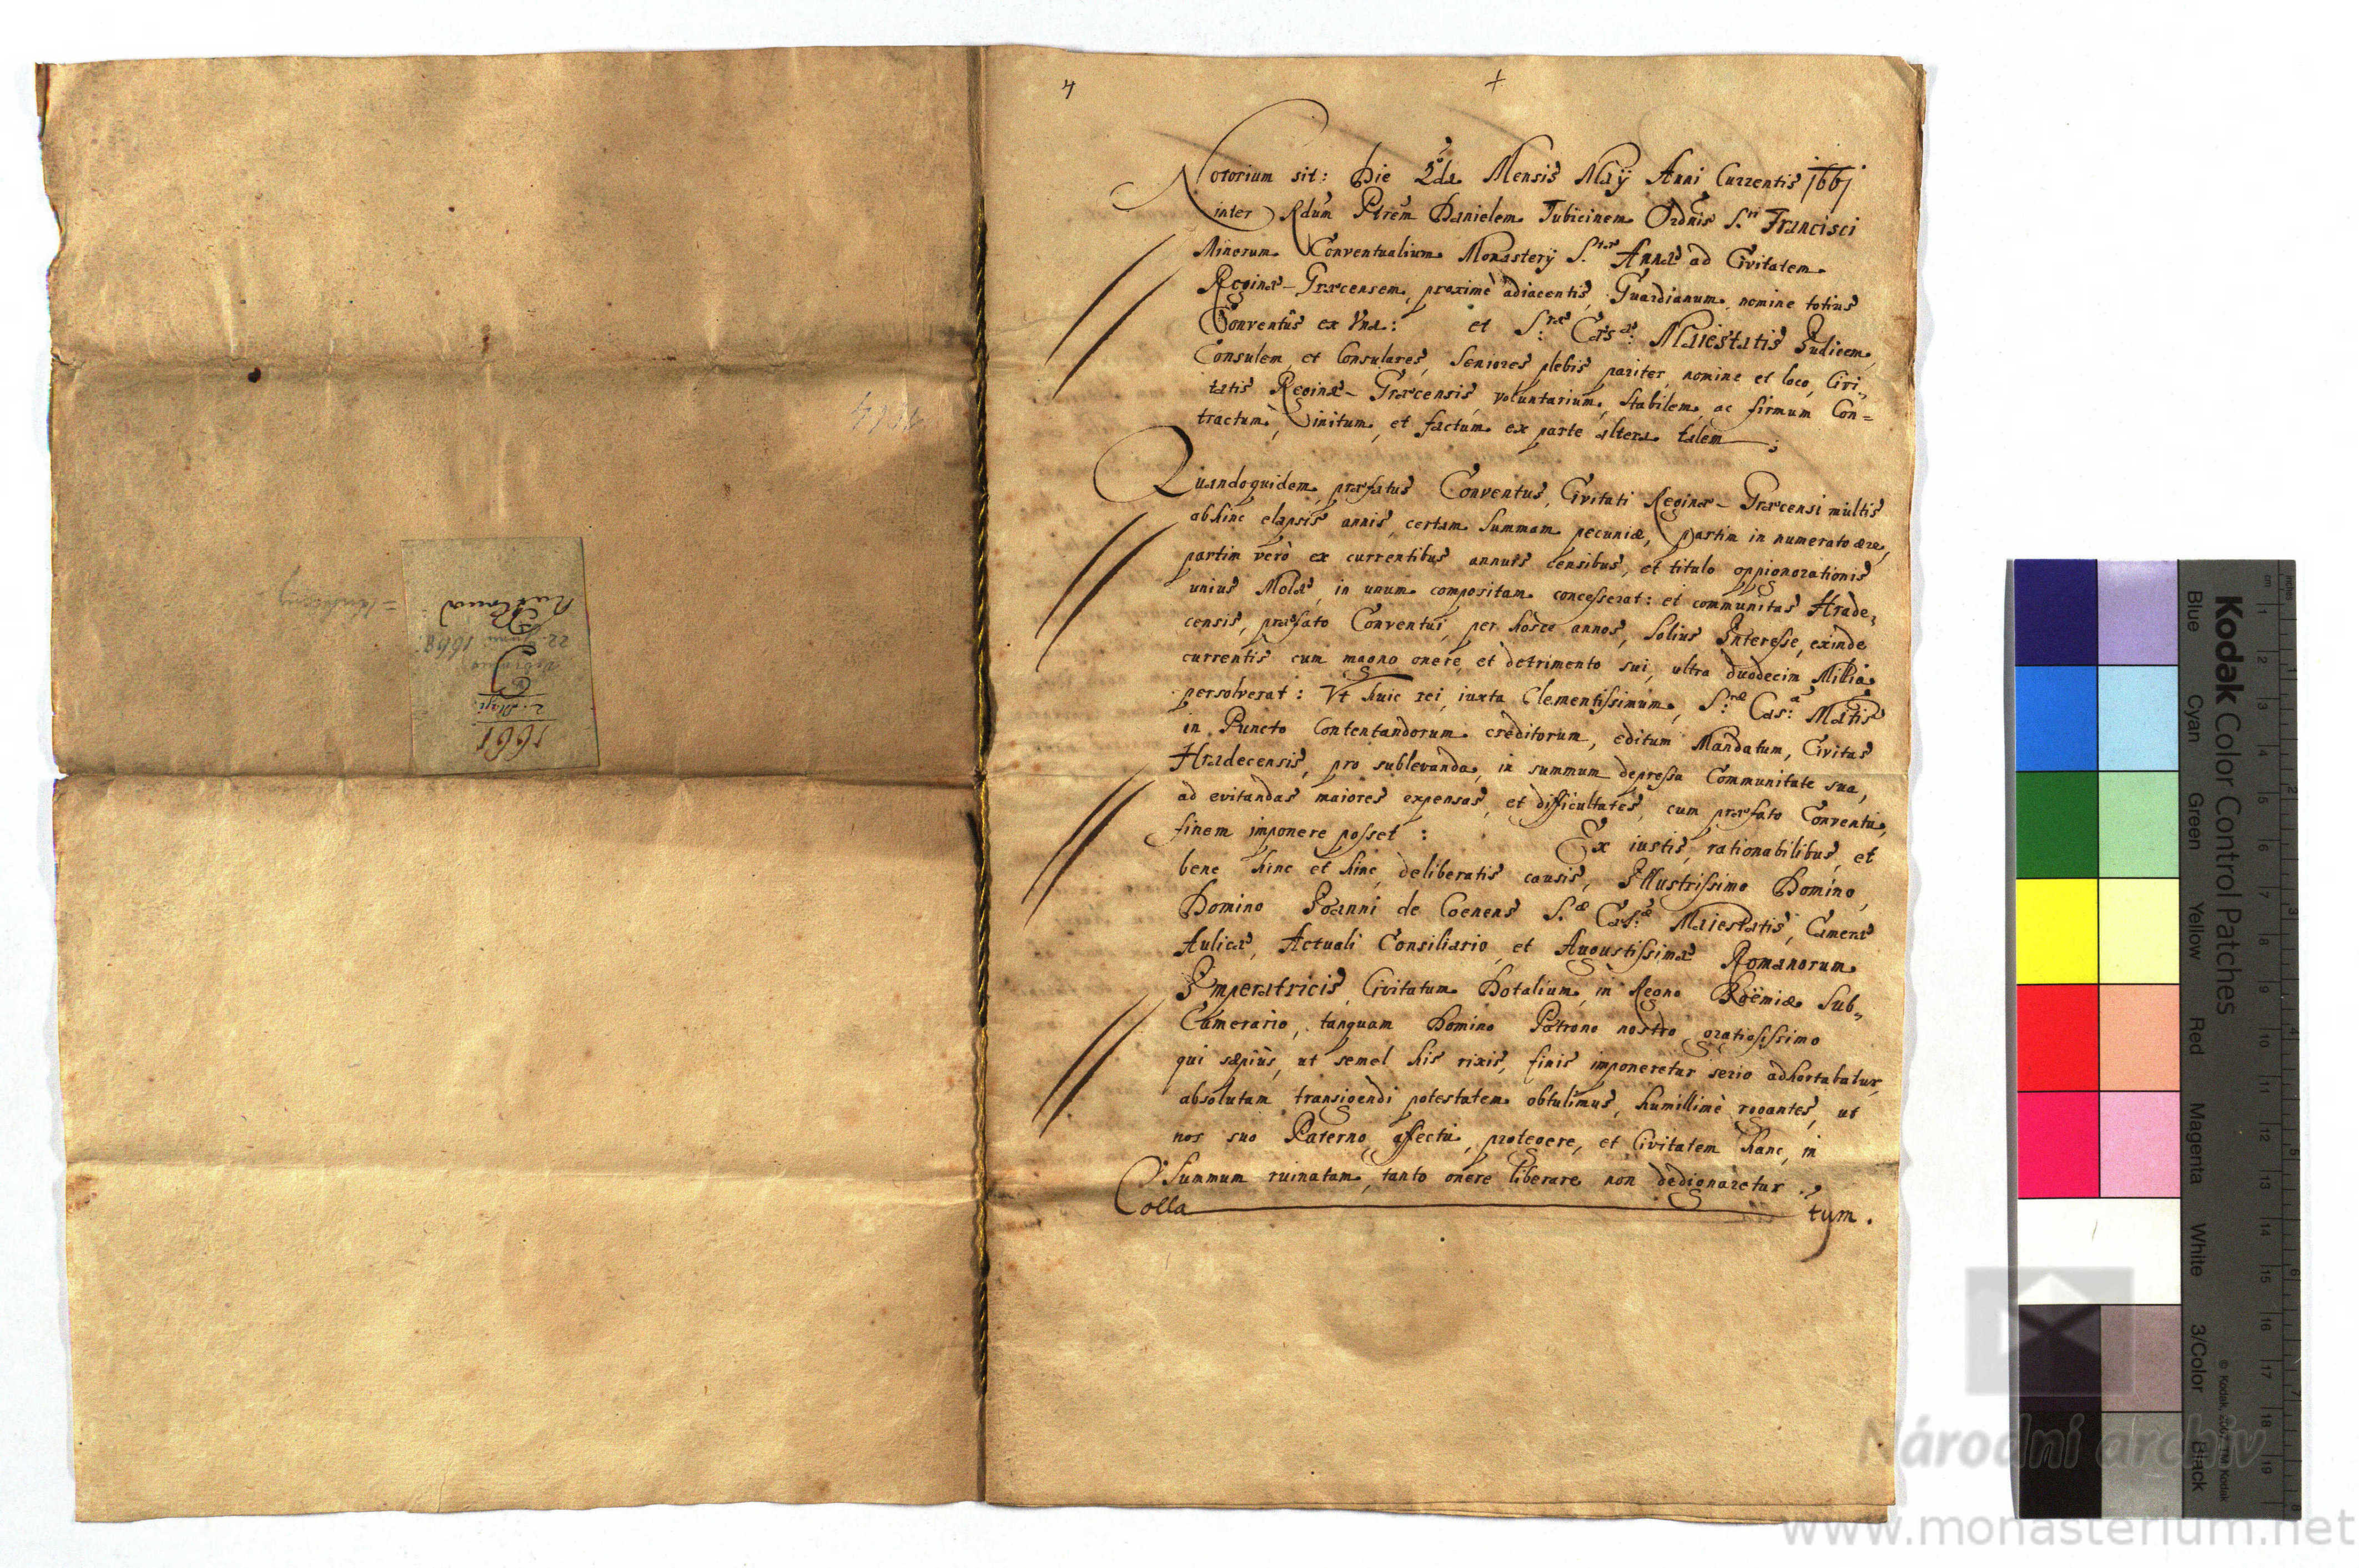 4
+
Notorium sit: Die 2da Mensis Maÿ Anni Currentis 1661
inter Rdum Ptrem Danielem Tubicinem Ordnis S.ti Francisci
Minorum Conventualium Monasterÿ S.tæ Annæ ad Civitatem
Reginæ-Græcensem, proximè adiacentis, Guardianum, nomine totius
Conventûs ex Una: et S:ræ Cæs:æ Maiestatis Iudicem,
Consulem, et Consulares, Seniores plebis pariter, nomine et loco, Civi„
tatis Reginæ-Græcensis, voluntarium, stabilem, ac firmum Con=
tractum, initum, et factum ex parte altera talem;
Quandoquidem præfatus Conventus, Civitati Reginæ-Græcensi multis
abhinc elapsis annis, certam Summam pecuniæ, partim in numerato ære,
partim verò ex currentibus annuis censibus, et titulo oppignorationis
unius Molæ, in unum compositam concesserat: et communitas Hrade„
censis, præfato Conventui, per hosce annos, solius Interesse, exinde
currentis cum magno onere, et detrimento sui, ultra duodecim Millia
persolverat: Ut huic rei, iuxta Clementissimum, S:ræ Cæs:æ Mattis
in Puncto Contentandorum creditorum, editum Mandatum, Civitas
Hradecensis, pro sublevanda, in summum depressa Communitate sua,
ad evitandas maiores expensas, et difficultates, cum præfato Conventu,
finem imponere posset: Ex iustis, rationabilibus, et
bene hinc et hinc, deliberatis causis, Illustrissimo Domino,
Domino Ioanni de Coenens S.æ Cæs:æ Maiestatis, Cameræ
Aulicæ, Actuali Consiliario, et Augustissimæ Romanorum
Imperatricis, Civitatum Dotalium, in Regno Boëmiæ Sub„
Camerario, tanquam Domino Patrono nostro gratiosissimo
qui sæpiùs, ut semel his rixis, finis imponeretur serio adhortabatur,
absolutam transigendi potestatem obtulimus, humillimè rogantes, ut
nos suo Paterno affectu, protegere, et Civitatem hanc, in
Summum ruinatam, tanto onere liberare non dedignaretur.
Colla tum.
1661
2. Maji
22. Juni 1668.
Kodak Color Control Patches
Blue Cyan Green Yellow Red Magenta White 3/Color Black
Národní archiv
www.monasterium.net